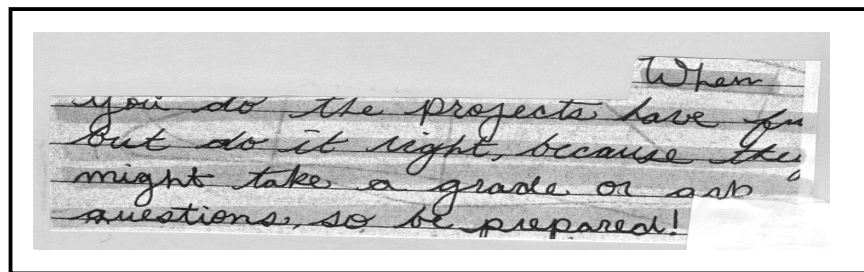 When
you do the projects, have fu
but do it right, because they
might take a grade or ask
questions, so be prepared!